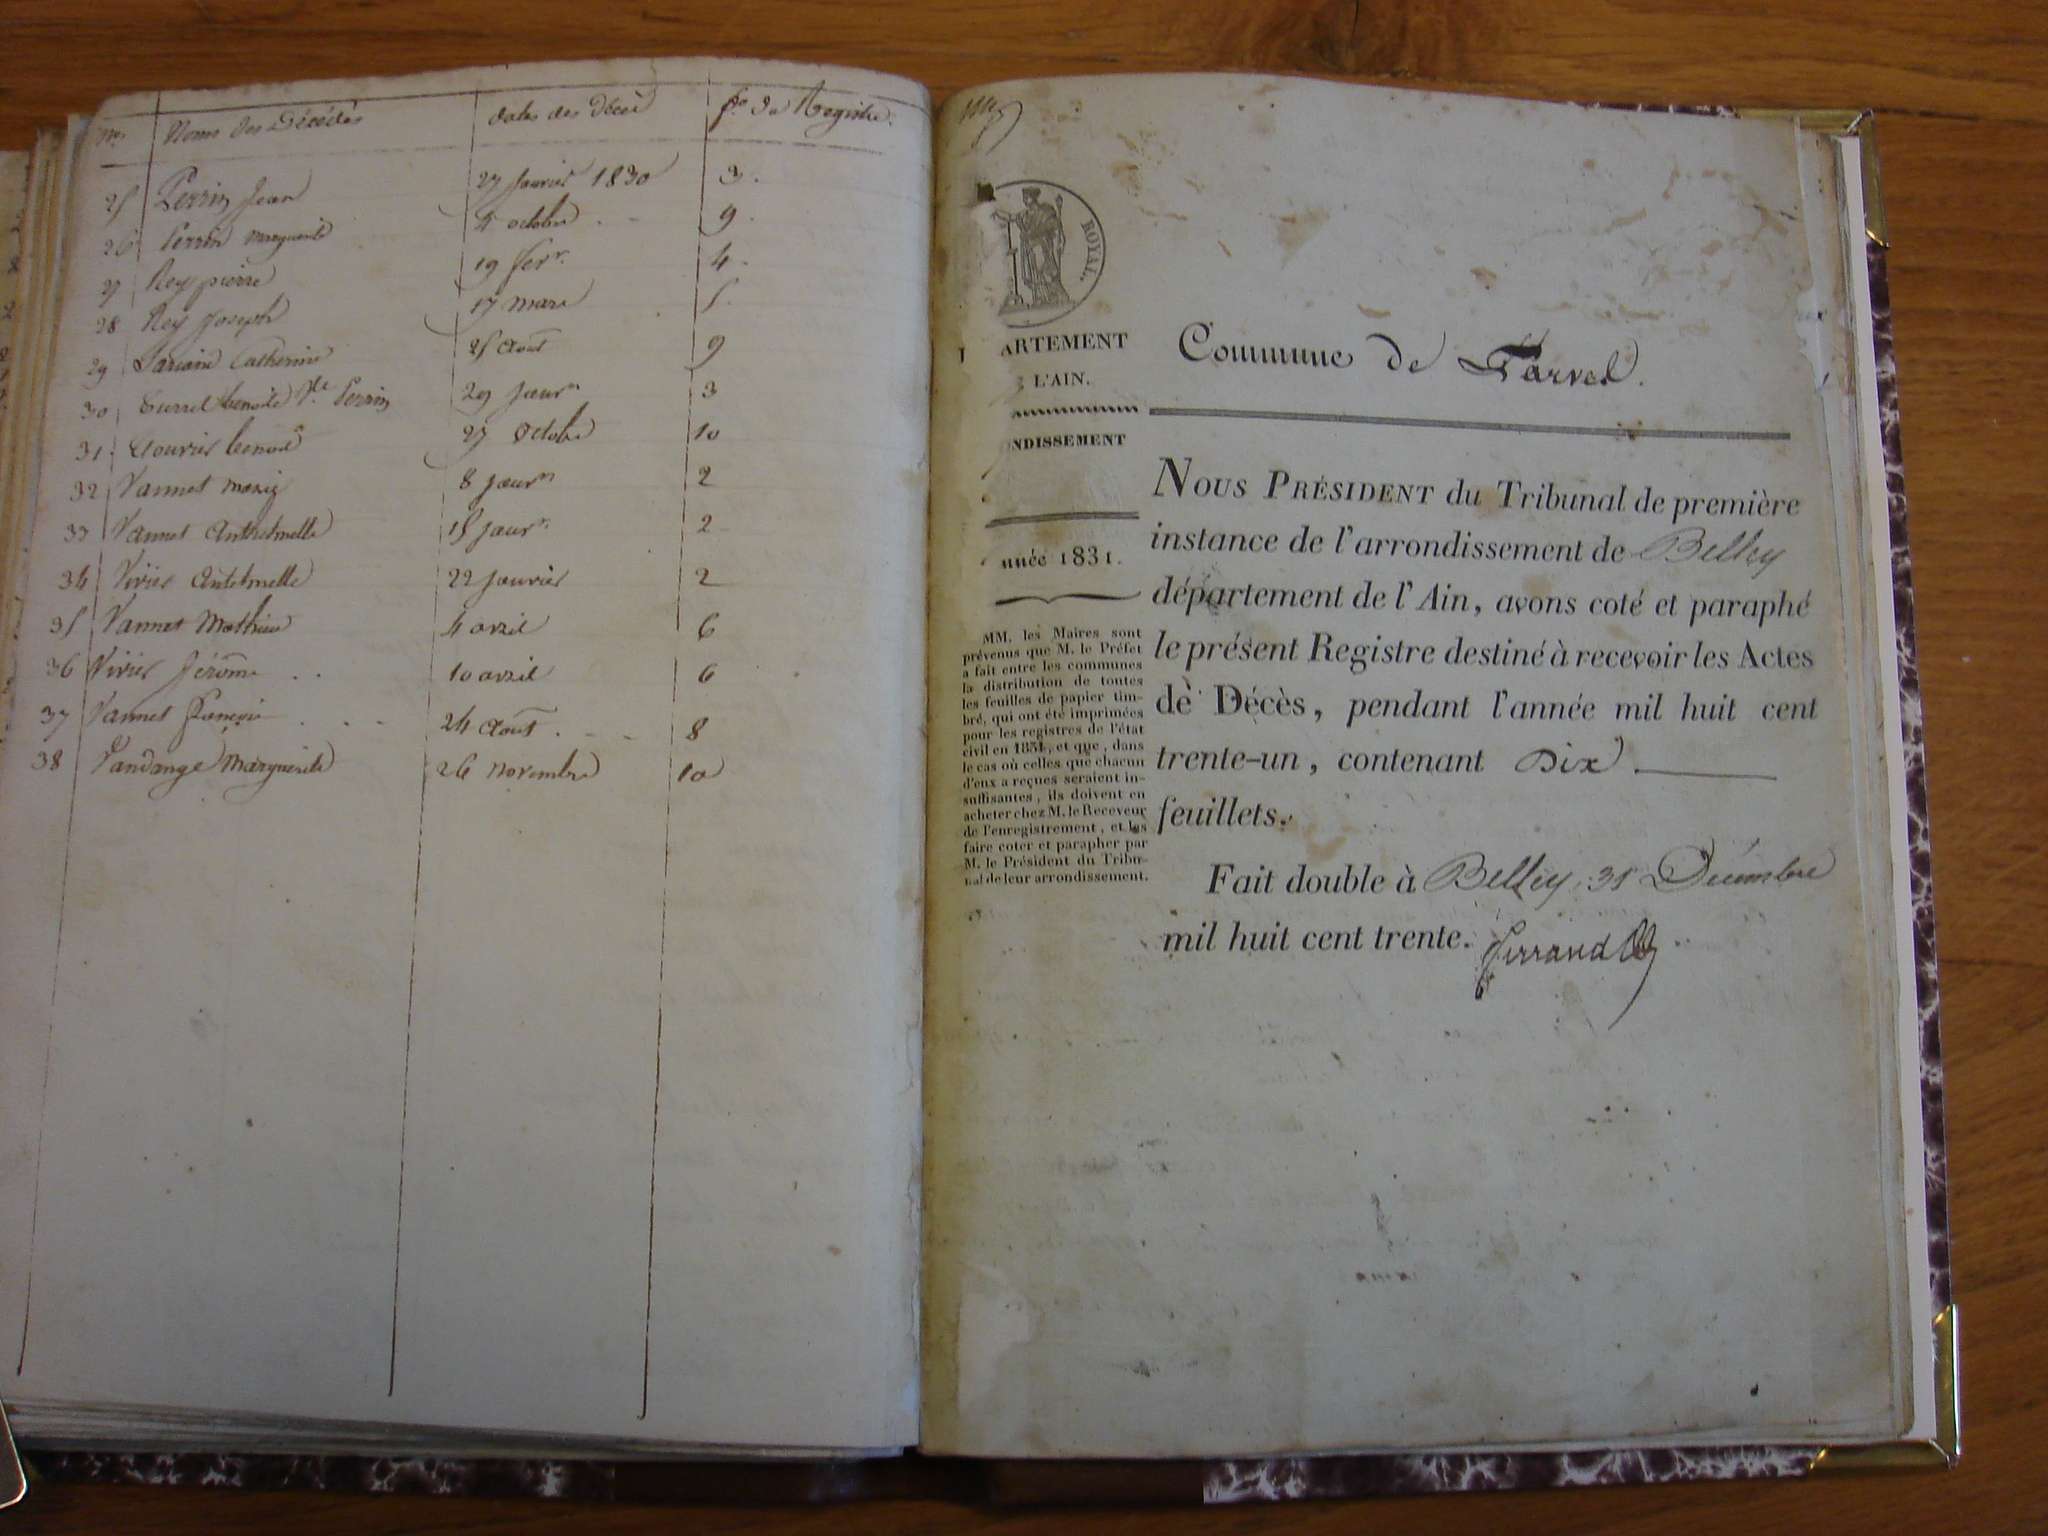 Nos Noms des Décédés dates des Décès fo du Registre
25 Perrin Jean 27 Janvier 1830 3.
26 Perrin Marguerite 4 octobre 9.
27 Rey pierre 19 fevr. 4.
28 Rey Joseph 17 mars 5.
29 Catherine 25 Août 9
30 benoite Ve Perrin 29 Janvr 3
31 benoit 27 Octobre 10
32 Vannet 8 janvr 2
33 Vannet Anthelmette 15 janvr. 2
34 Vivier Antelmette 22 Janvier 2
35 Vannet Mathieu 4 avril 6
36 Vivier Jérôme 10 avril 6
37 Vannet François 24 Août 8
38 Vandange Marguerite 26 Novembre 10
ROYAL.
ARTEMENT
L'AIN.
ONDISSEMENT
nnée 1831.
MM. les Maires sont
prévenus que M. le Préfet
a fait entre les communes
la distribution de toutes
les feuilles de papier tim-
bré, qui ont été imprimées
pour les registres de l'état
civil en 1831, et que, dans
le cas où celles que chacun
d'eux a reçues seraient in-
suffisantes, ils doivent en
acheter chez M. le Receveur
de l'enregistrement, et les
faire coter et parapher par
M. le Président du Tribu-
nal de leur arrondissement.
Commune de
NOUS PRÉSIDENT du Tribunal de première
instance de l'arrondissement de Belley
département de l'Ain, avons coté et paraphé
le présent Registre destiné à recevoir les Actes
de Décès, pendant l'année mil huit cent
trente-un, contenant Dix
feuillets.
Fait double à Belley, 31 Décembre
mil huit cent trente. Ferrand